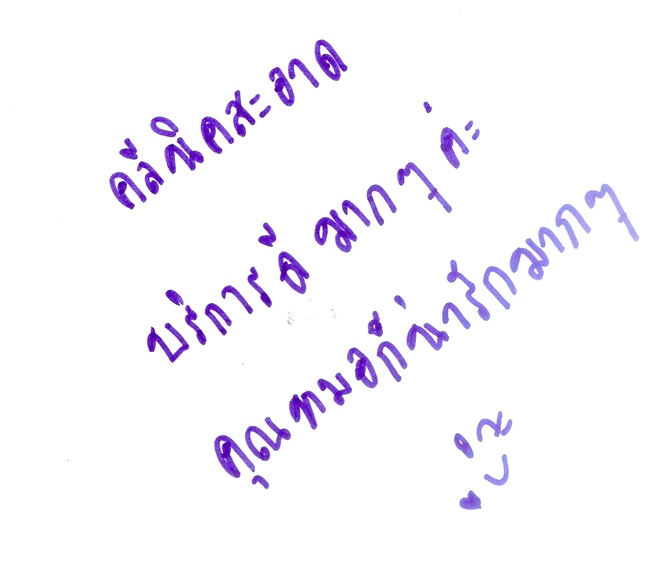 คลีนิคสะอาด
บริการดี มากๆ ค่ะ
คุณหมอก็น่ารักมากๆ